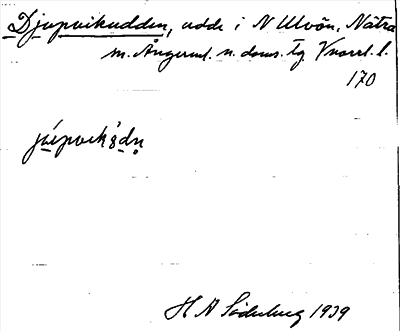 Djupvikudden, udde i N Ulvön, Nätra
sn. Ångerml. n. doms. tg. Vnorrl. l.
170
H A Söderberg 1939